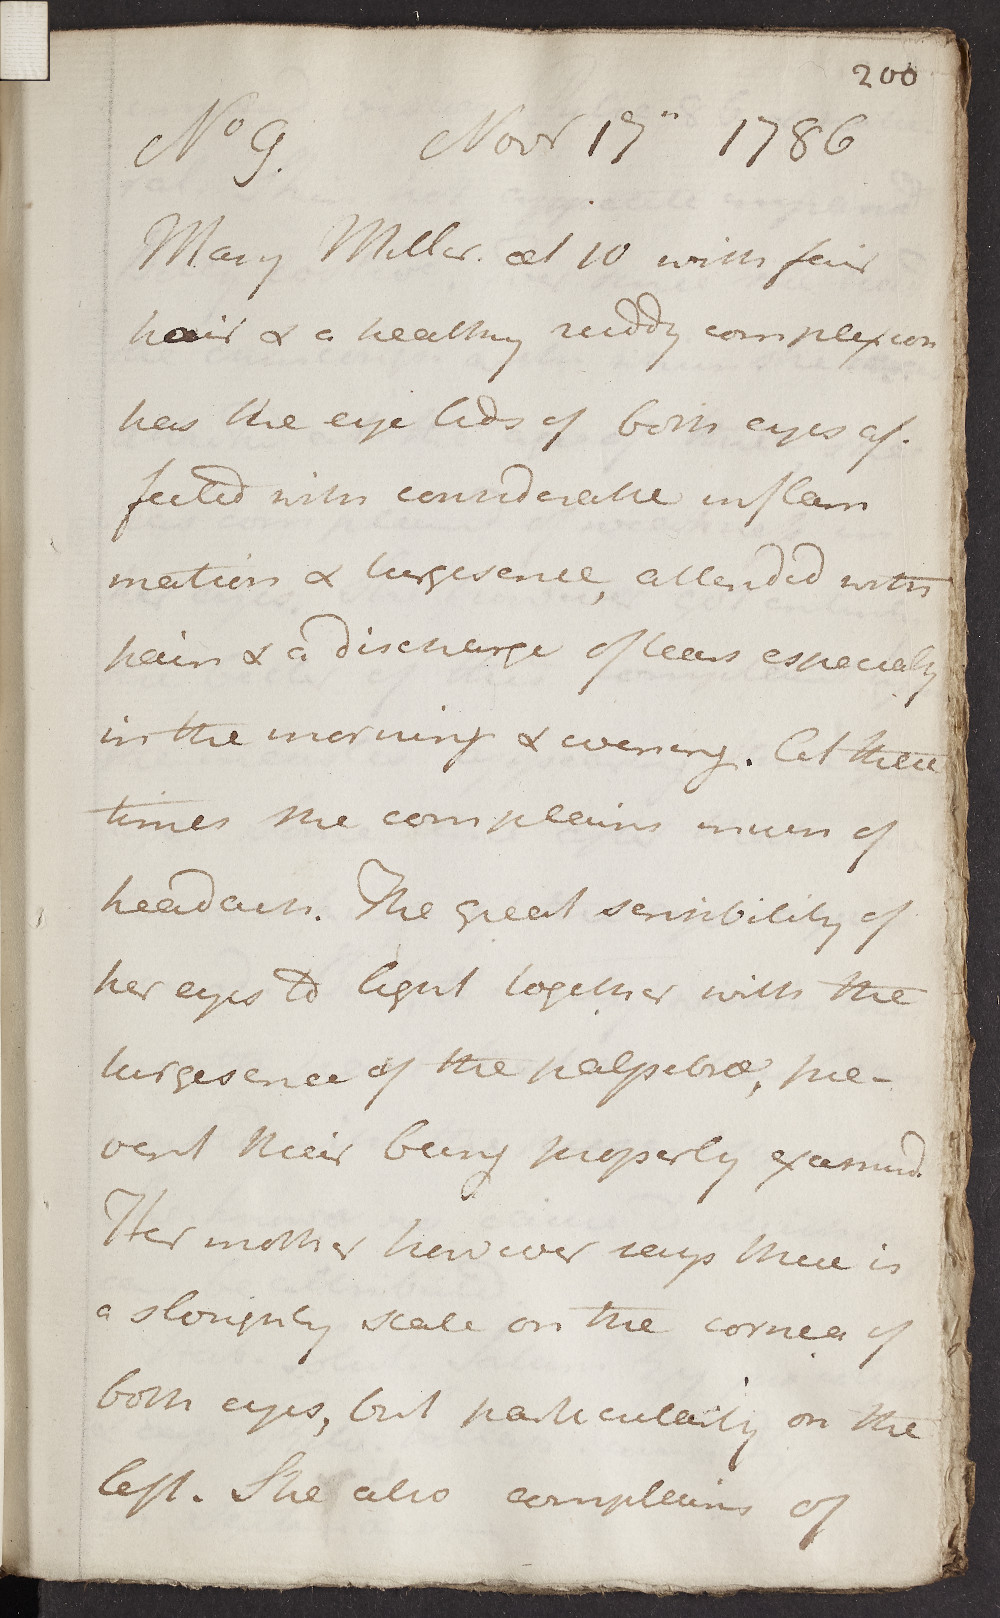 200
No 9. Novr 17th 1786
Mary Miller. æt 10 with fair
hair & a healthy ruddy complexion
has the eye lids of both eyes af-
fected with considerable inflam
mation & turgesence, attended with
pain & a discharge of tears especialy
in the morning & evening. At these
times she complains much of
headach. The great sensibility of
her eyes to light together with the
turgesence of the palpebræ, pre-
vent their being properly examind.
Her mother however says there is
a sloughy scale on the cornea of
both eyes, but particularily on the
left. She also complains of